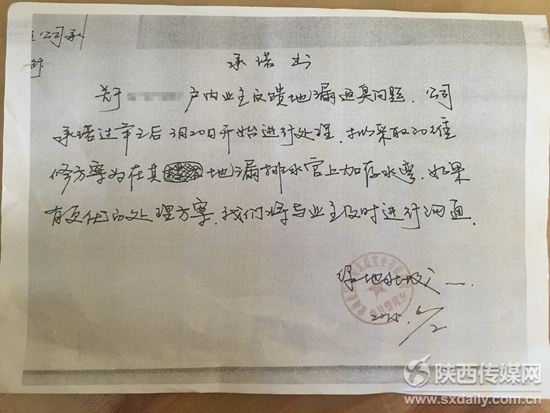 公司承
承诺书
关于 户内业主反馈地漏返臭问题.公司
承诺过年之后3月20日开始进行处理.拟采取的维
修方案为在其 地漏排水管上加存水弯.如果
有更优的处理方案.我们将与业主及时进行沟通.
绿地
陕西传媒网
www.sxdaily.com.cn